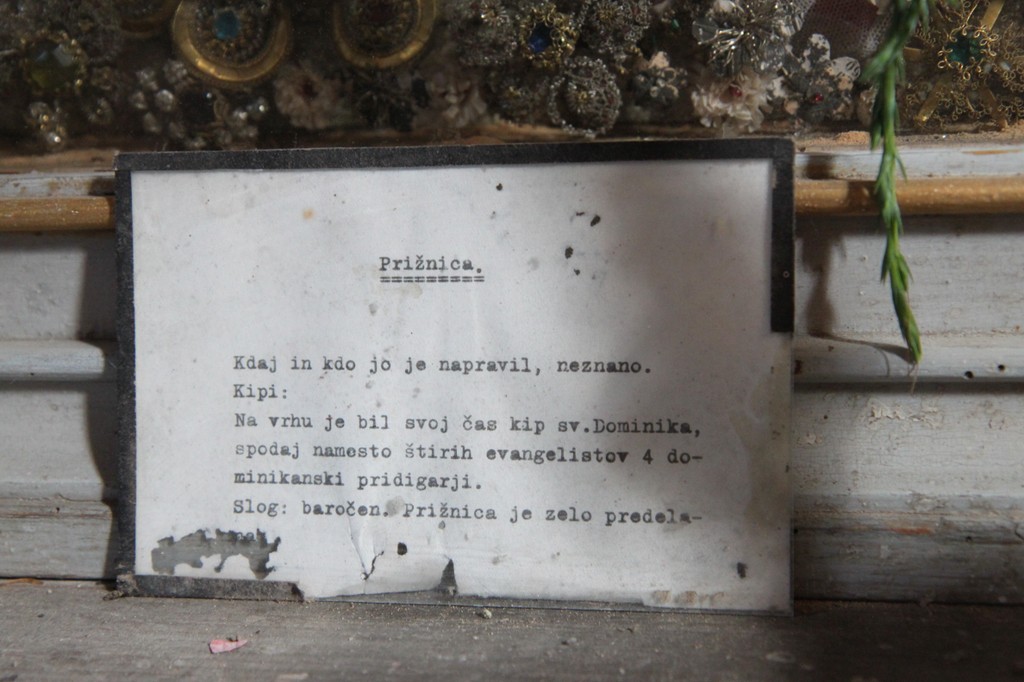 Prižnica.
=========
Kdaj in kdo jo je napravil, neznano.
Kipi:
Na vrhu je bil svoj čas kip sv.Dominika,
spodaj namesto štirih evangelistov 4 do-
minikanski pridigarji.
Slog: baročen. Prižnica je zelo predela-